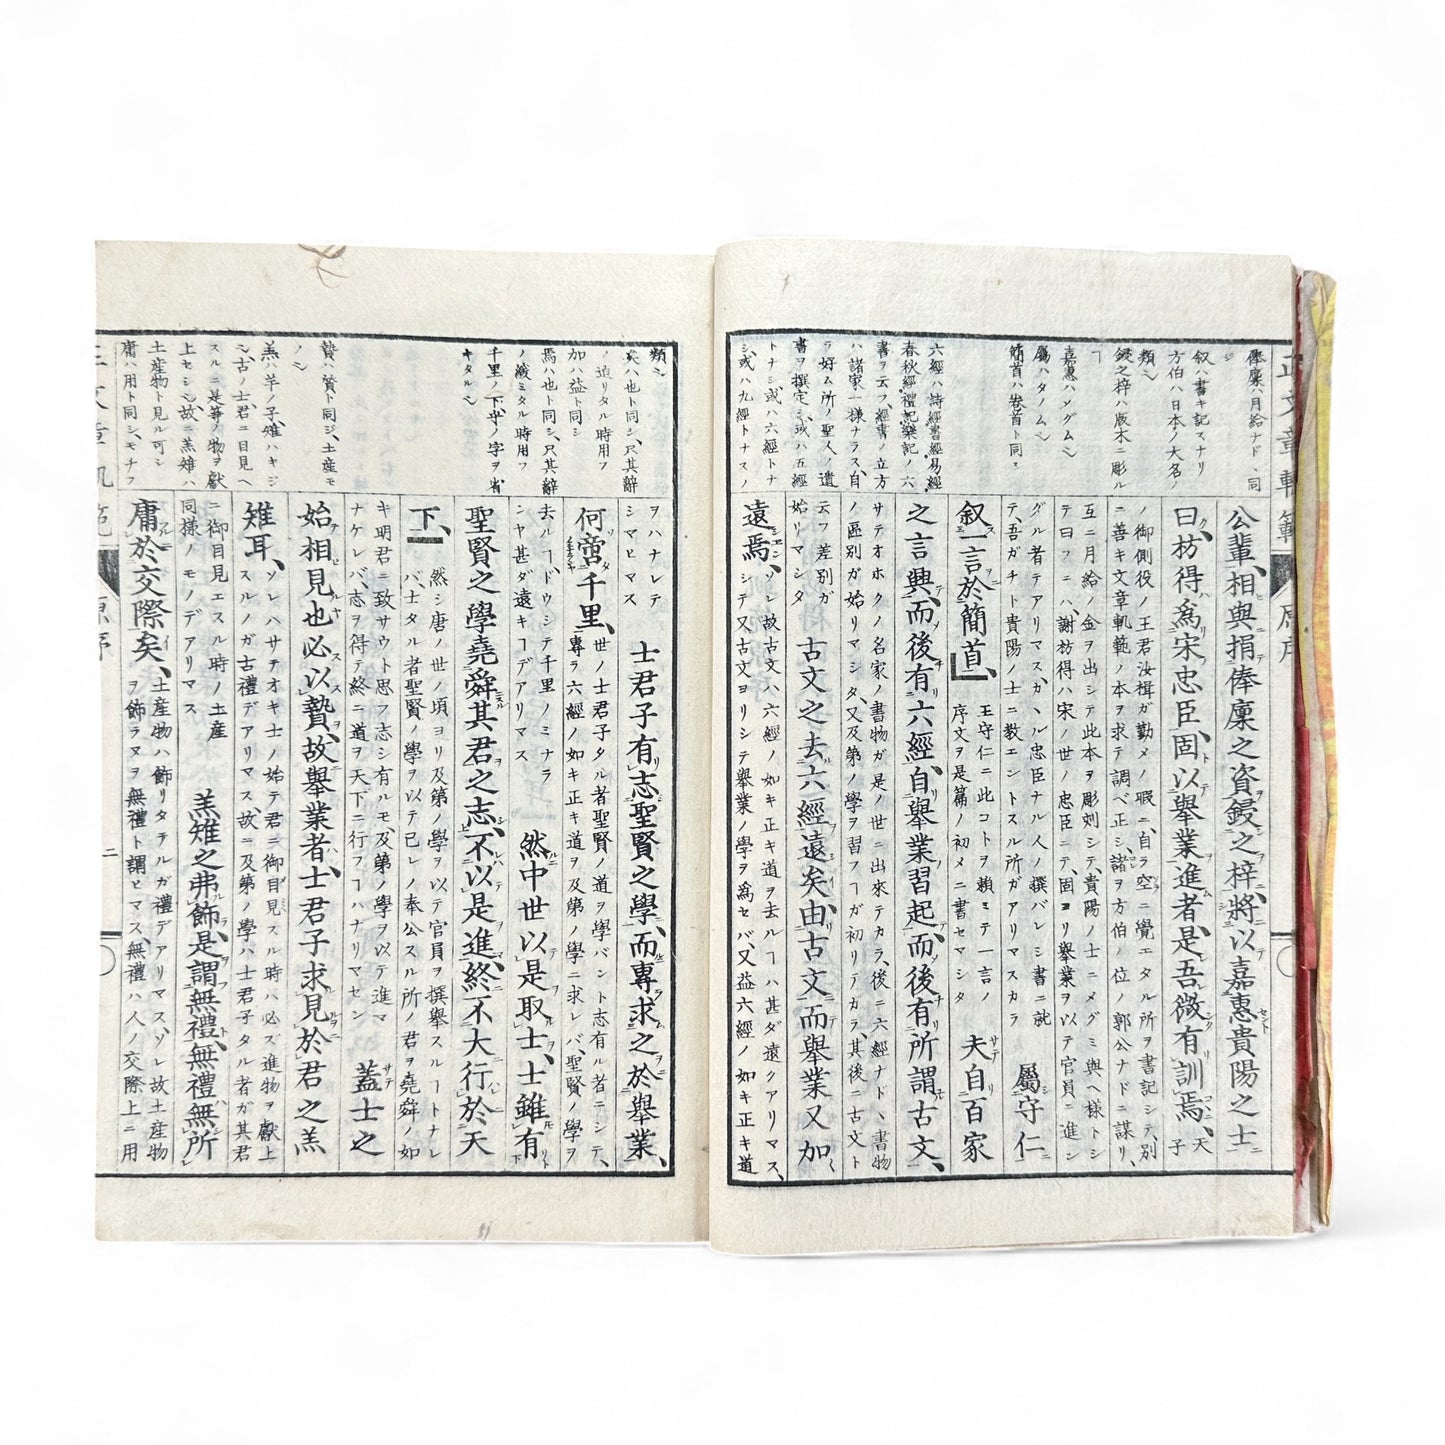 俸廩ハ月給ナド丶同
シ
叙ハ書キ記スナリ
方伯ハ日本ノ大名ノ
類シ
鋟之梓ハ版木ニ彫ル
ヿ
嘉惠ハメグムヿ
屬ハタノムヿ
簡首ハ卷首ト同シ
六經ハ詩經書經易經
春秋經禮記樂記ノ六
書ヲ云フ、經書ノ立方
ハ諸家一樣ナラス、自
ラ好ム所ノ聖人ノ遺
書ヲ撰定シ或ハ五經
トナシ或ハ六經トナ
シ、或ハ九經トナスノ
公輩、相與捐俸廩之資鋟之梓、將以嘉惠貴陽之士
曰、枋得爲宋忠臣、固以舉業進者、是吾微有訓焉、天子
ノ御側役ノ王君汝楫ガ勤メノ暇ニ、自ラ空ニ覺エタル所ヲ書記シテ、別
ニ善キ文章軌範ノ本ヲ求テ調ベ正シ、諸ヲ方伯ノ位ノ郭公ナドニ謀リ、
互ニ月給ノ金ヲ出シテ此本ヲ彫刻シテ、貴陽ノ士ニメグミ與ヘ樣トシ
テ曰フニハ、謝枋得ハ宋ノ世ノ忠臣ニテ、固ヨリ舉業ヲ以テ官員ニ進ン
グル者テアリマス、カ丶ル忠臣ナル人ノ撰バレシ書ニ就
テ、吾ガチト貴陽ノ士ニ教エントスル所ガアリマスカラ
屬守仁
叙一言於簡首、
王守仁ニ此コトヲ賴ミテ一言ノ
序文ヲ是篇ノ初メニ書セマシタ
夫自百家
之言興、而後有六經、自舉業習起、而後有所謂古文、
サテオホクノ名家ノ書物ガ是ノ世ニ出來テカラ、後ニ六經ナド丶書物
ノ區別ガ始リマシタ、又及第ノ學ヲ習フヿガ初リテカラ、其後ニ古文ト
云フ差別ガ
始リマシタ
古文之去六經遠矣、由古文而舉業又加
遠焉、
ソレ故古文ハ六經ノ如キ正キ道ヲ去ルヿハ甚ダ遠クアリマス、
シテ又古文ヨリシテ舉業ノ學ヲ爲セバ、又益六經ノ如キ正キ道
類シ
矣ハ也ト同シ、只其辭
ノ迫リタル時用フ
加ハ益ト同シ
焉ハ也ト同シ、只其辭
ノ緩ミタル時用フ
千里ノ下、乎ノ字ヲ省
キタルシ
贄ハ質ト同ジ、土産モ
ノシ
羔ハ羊ノ子、雉ハキジ
シ、古ノ士、君ニ目見ヘ
スルニ是等ノ物ヲ獻
上セシシ、故ニ羔雉ハ
土産物ト見ル可シ
庸ハ用ト同シ、モナフ
ヲハナレテ
シマヒマス
士君子有志聖賢之學、而專求之於舉業、
何啻千里、
世ノ士君子タル者聖賢ノ道ヲ學バント志有ル者ニシテ、
專ラ六經ノ如キ正キ道ヲ及第ノ學ニ求レバ、聖賢ノ學ヲ
去ルヿ、ドウシテ千里ノミナラ
ンヤ甚ダ遠キヿデアリマス
然中世以是取士、士雖有
聖賢之學、堯舜其君之志、不以是進、終不大行於天
下、
然シ唐ノ世ノ頃ヨリ及第ノ學ヲ以テ官員ヲ撰舉スルヿトナレ
バ、士タル者聖賢ノ學ヲ以テ已レノ奉公スル所ノ君ヲ堯舜ノ如
キ明君ニ致サウト思フ志シ有ルモ、及第ノ學ヲ以テ進マ
ナケレバ、志ヲ得テ終ニ道ヲ天下ニ行フヿハナリマセン
蓋士之
始相見也、必以贄、故舉業者、士君子求見於君之羔
雉耳、
ソレハサテオキ士ノ始テ君ニ御目見スル時ハ必ズ進物ヲ獻上
スルノガ古禮デアリマス、故ニ及第ノ學ハ士君子タル者ガ其君
ニ御目見エスル時ノ土産
同樣ノモノデアリマス
羔雉之弗飾、是謂無禮、無禮、無所
庸於交際矣、
土産物ハ飾リタテルガ禮デアリマス、ソレ故土産物
ヲ飾ラヌヲ無禮ト謂ヒマス、無禮ハ人ノ交際上ニ用
二